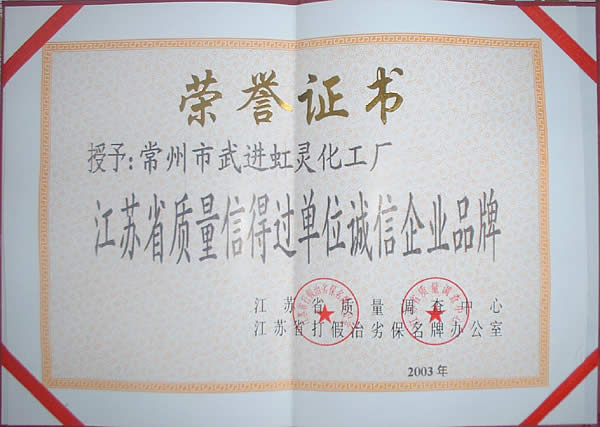 荣誉证书
授予:常州市武进虹灵化工厂
江苏省质量信得过单位诚信企业品牌
江苏省质量调查中心
江苏省打假治劣保名牌办公室
2003年